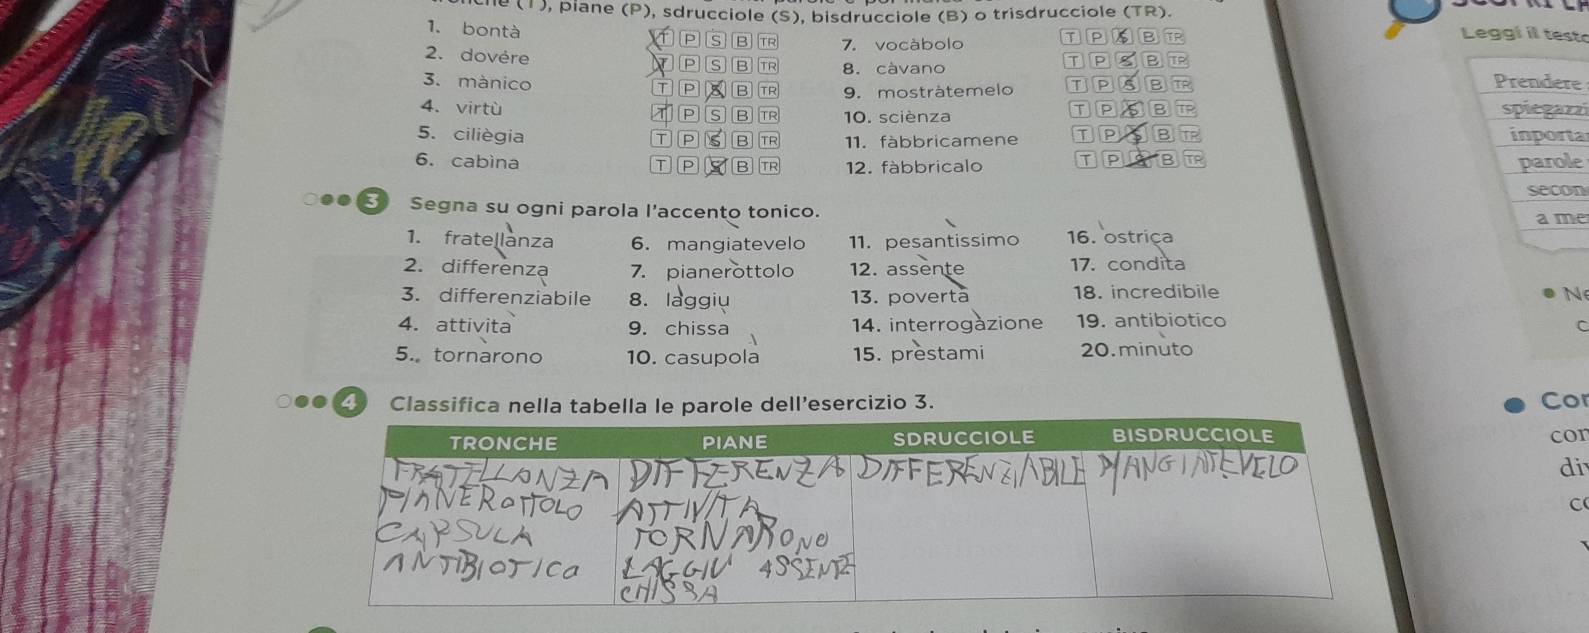 (T), piane (P), sdrucciole (S), bisdrucciole (B) o trisdrucciole (TR).
1. bontà T P S B TR
2. dovére T P S B TR
3. mànico T P S B TR
4. virtù T P S B TR
5. ciliègia T P S B TR
6. cabìna T P S B TR
7. vocàbolo T P S B TR
8. càvano T P S B TR
9. mostràtemelo T P S B TR
10. sciènza T P S B TR
11. fàbbricamene T P S B TR
12. fàbbricalo T P S B TR
3 Segna su ogni parola l'accento tonico.
1. fratellanza
2. differenza
3. differenziabile
4. attivita
5. tornarono
6. mangiatevelo
7. pianerottolo
8. laggiu
9. chissa
10. casupola
11. pesantissimo
12. assente
13. poverta
14. interrogazione
15. prestami
16. ostrica
17. condita
18. incredibile
19. antibiotico
20. minuto
4 Classifica nella tabella le parole dell'esercizio 3.
TRONCHE PIANE SDRUCCIOLE BISDRUCCIOLE
FRATELLANZA DIFFERENZA DIFFERENZIABILE MANGIATEVELO
PIANEROTTOLO ATTIVITA
TORNARONO
ANTIBIOTICA LAGGIU ASSENTE
CHISSA
Leggi il testo
Prendere
spiegazzi
inporta
parole
secon
a me
Ne
C
Cor
con
div
co